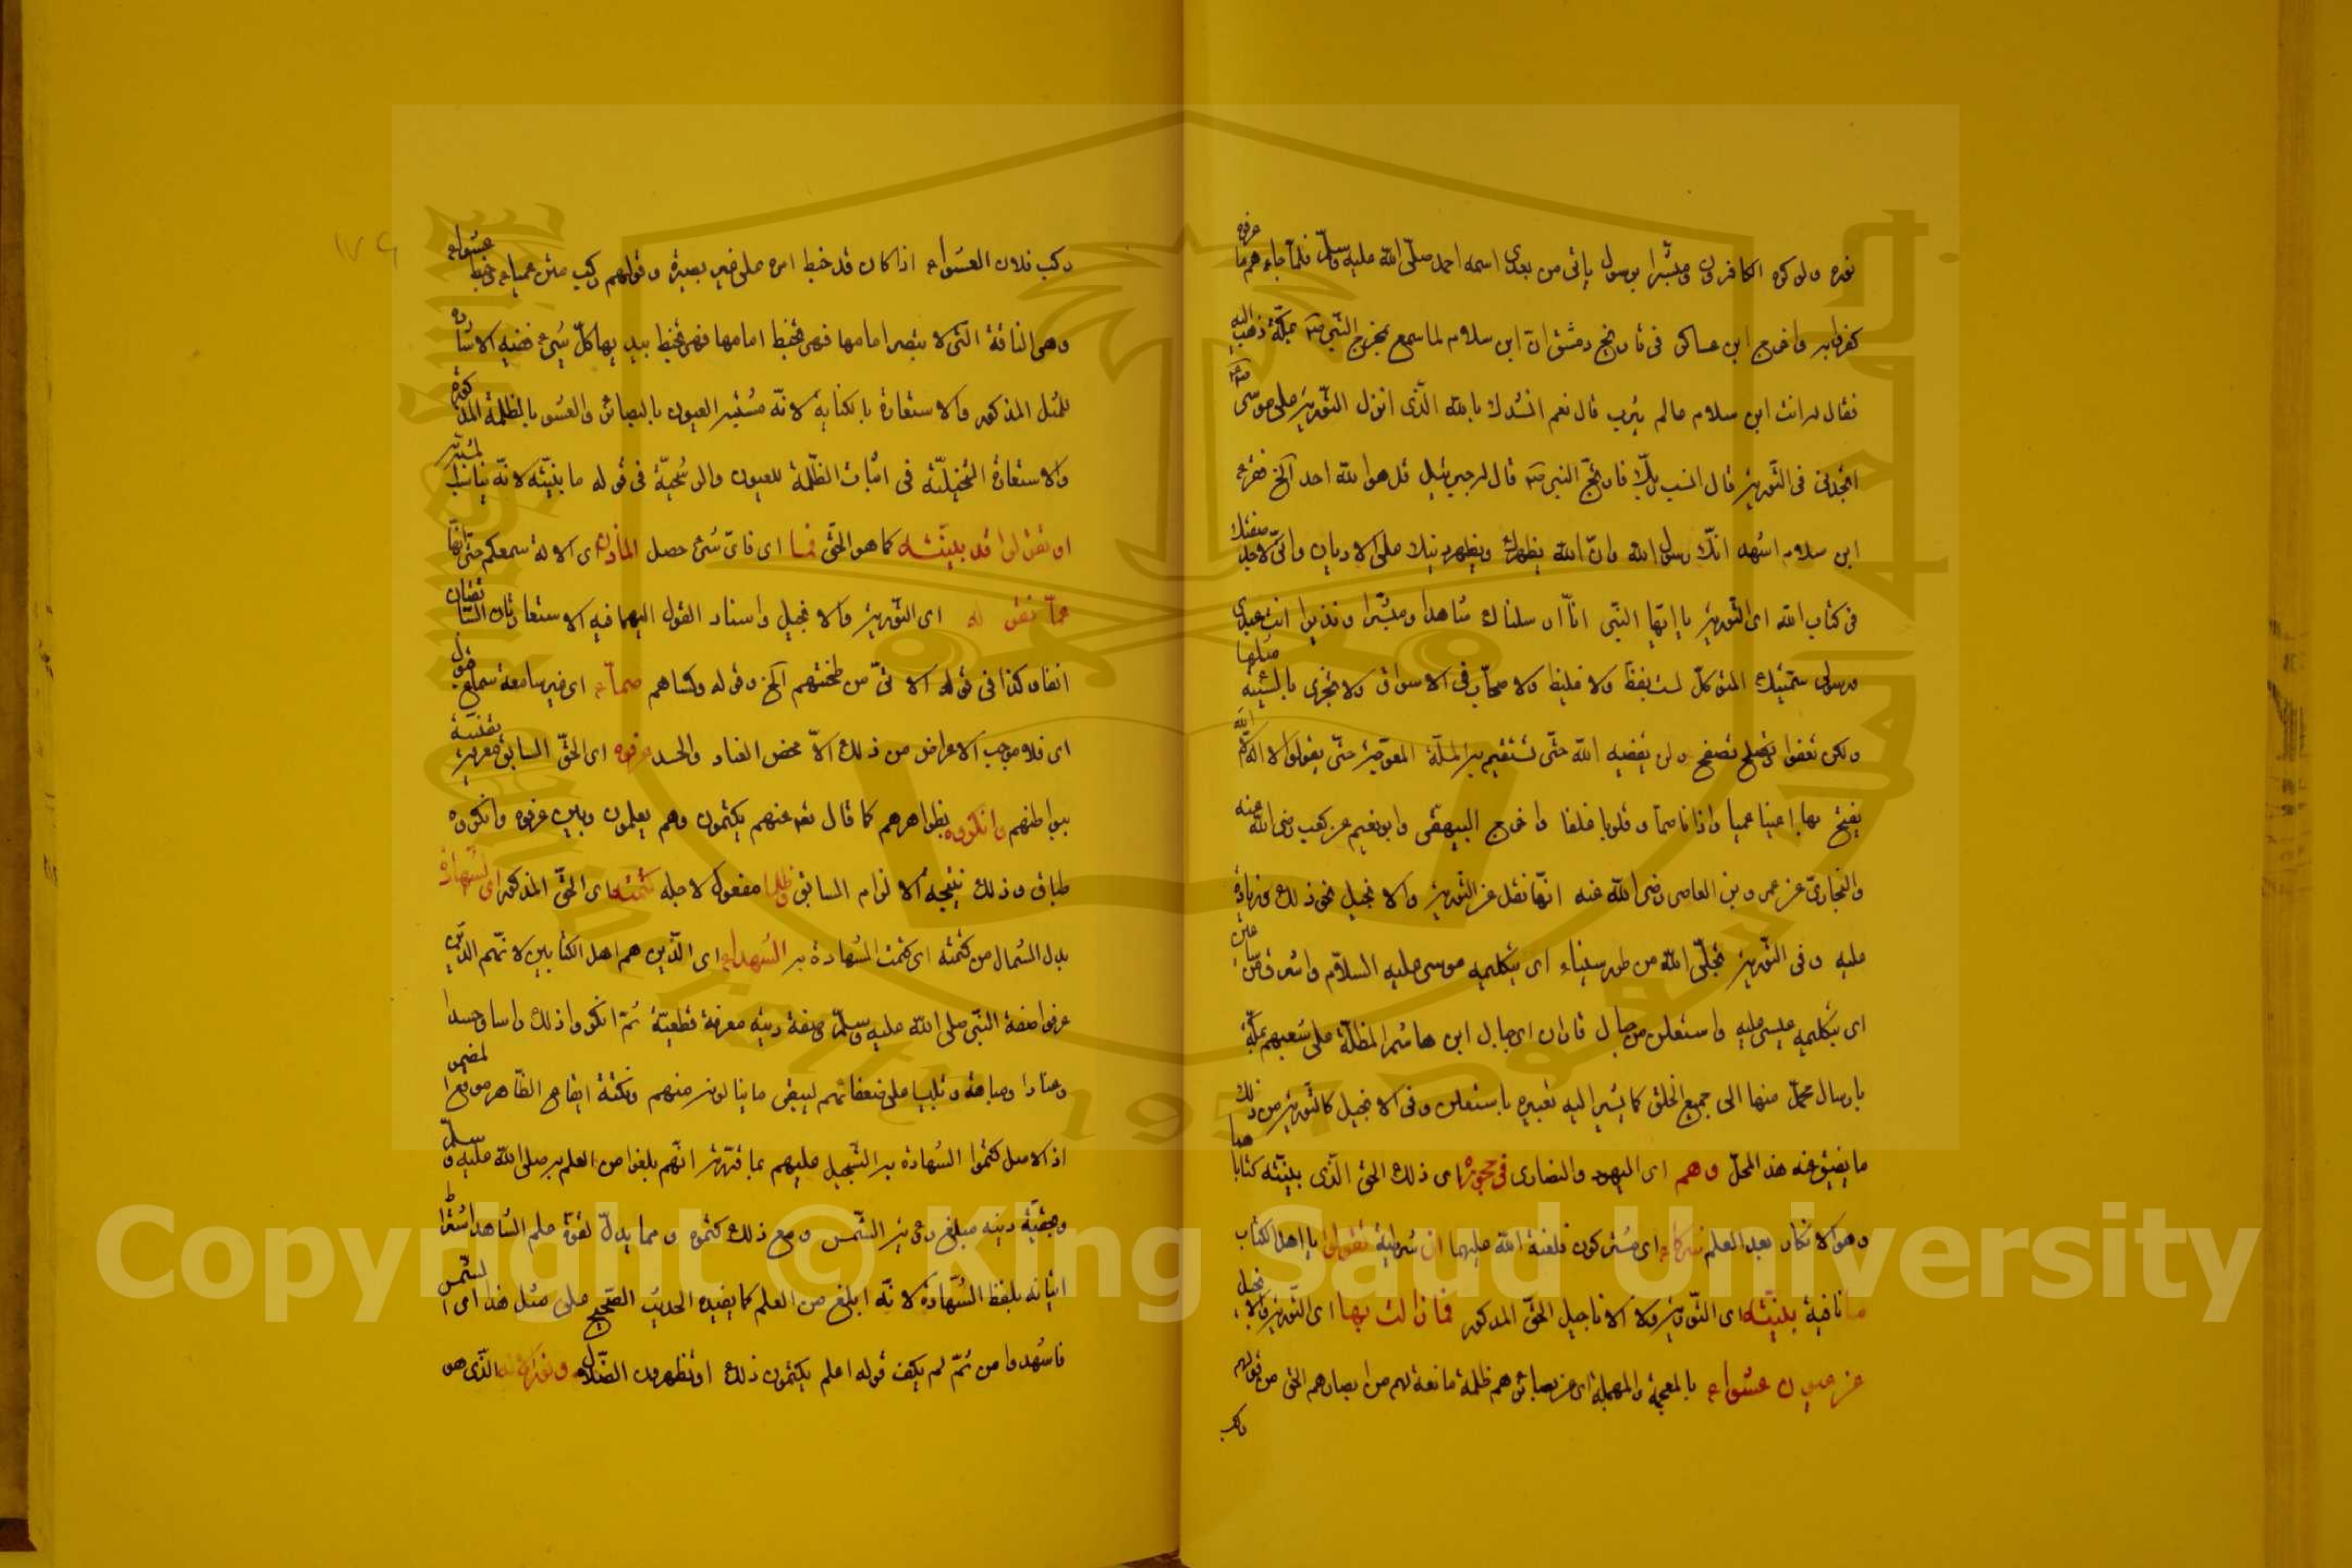 نوره ولو كره الكافرون ومبشرا برسول يأتي من بعدي اسمه احمد صلى الله عليه وسلم فلما جاءهم ما عرفوه
كفروا به واخرج ابن عساكر في تاريخ دمشق ان ابن سلام لما سمع بمخرج النبي بمكة ذهب اليه
فقال له انت ابن سلام عالم يثرب قال نعم انشدك بالله الذي انزل التورية على موسى
اتجدني في التورية قال انسب ربك فارتج النبي قال له جبرئيل قل هو الله احد الخ فقرء
ابن سلام اشهد انك رسول الله وان الله يظهرك ويظهر دينك على الاديان واني لاجد صفتك
في كتاب الله اى التورية يا ايها النبي انا ارسلناك شاهدا ومبشرا ونذيرا انت عبدي
ورسولي سميتك المتوكل لست بفظ ولا غليظ ولا صخاب في الاسواق ولا تجزي بالسيئة مثلها
ولكن تعفوا وتصفح ولن يقضيه الله حتى تستقيم به الملة المعوجة حتى يقولوا لا اله الا الله
يفتح بها اعينا عميا واذانا صما وقلوبا غلفا واخرج البيهقي وابو نعيم عن كعب رضي الله عنه
والبخاري عن عمرو بن العاص رضي الله عنه انها نقل عن التورية والانجيل نحو ذلك وزيادة
عليه وفي التورية تجلى الله من طور سيناء اى بتكليمه موسى عليه السلام واشرق من ساعير
اى بتكليمه عيسى عليه واستعلن من جبال فاران اى جبال ابن هاشم المظلة على شعبهم بمكة
بارسال محمد منها الى جميع الخلق كما يشير اليه تعبيره باستعلن وفي الانجيل كالتورية من ذلك
ما يضيق عنه هذا المحل وهم اى اليهود والنصارى في جحوره اى ذلك الحق الذي بينته كتابا
وهو الانكار بعد العلم شركاء اى مشتركون فلعنة الله عليهما ان شرطية تقولوا يا اهل الكتاب
ما نافية بينته اى التورية ولا الاناجيل الحق المذكور فما زالت بها اى التورية والانجيل
عن عيون عشواء بالمعجمة والمهملة اى عن بصائرهم ظلمة مانعة لهم من ابصارهم الحق من قولهم
ركب
ركب فلان العشواء اذا كان قد خبط امره على غير بصيرة وقولهم ركب متن عمياء وخبط عشواء
وهي الناقة التي لا تبصر امامها فهي تخبط بيديها كل شيء ففيه الاشارة
للمثل المذكور والاستعارة بالكناية لانه مشتبه العيون بالبصائر والعشو بالظلمة المذكورة
والاستعارة التخييلية في اثبات الظلمة للعيون والترشيحية في قوله ما بينته لانه يناسب
او تقولوا قد بينته كما هو الحق فما اى فاى شيء حصل الماذن اى الالة سمعكم حتى
عما تقوله اى التورية والانجيل واسناد القول اليهما فيه الاستعارتان السابقتان
انفا وكذا في قوله الاتي من طحنتهم الخ وقوله وكساهم صماء اى غير سامعة سماع قبول
اى فلا موجب الاعراض من ذلك الا محض العناد والحسد عرفوه اى الحق السابق معرفة يقينية
ببواطنهم وانكروه بظواهرهم كما قال تعالى عنهم يكتمون وهم يعلمون وبين عرفوه وانكروه
طباق وذلك نتيجة الالزام السابق وظلما مفعول لاجله كتمته اى الحق المذكور اى الشهادة
بدل اشتمال من كتمته اى كتمت الشهادة به الشهداء اى الذين هم اهل الكتابين لانهم الذين
عرفوا صفة النبي صلى الله عليه وسلم وصفة دينه معرفة قطعية ثم انكروا ذلك راسا وحسدا
وعنادا ومباهتة وتلبيسا على ضعفائهم ليبقى ما ينالونه منهم ونكتة ايقاع الظاهر موقع المضمر
اذ الاصل كتموا الشهادة به التسجيل عليهم بما قررته انهم بلغوا من العلم به صلى الله عليه وسلم
وحقية دينه مبلغ رؤية الشمس ومع ذلك كتموه ومما يدل لقوة علم الشاهد اشتراط
اتيانه بلفظ الشهادة لانه ابلغ من العلم كما يفيده الحديث الصحيح على مثل هذا اى الشمس
فاشهدوا من ثم لم يكف قوله اعلم يكتمون ذلك او تظهرون الضلال ونور الاله الذي هو
Copyright © King Saud University
1957